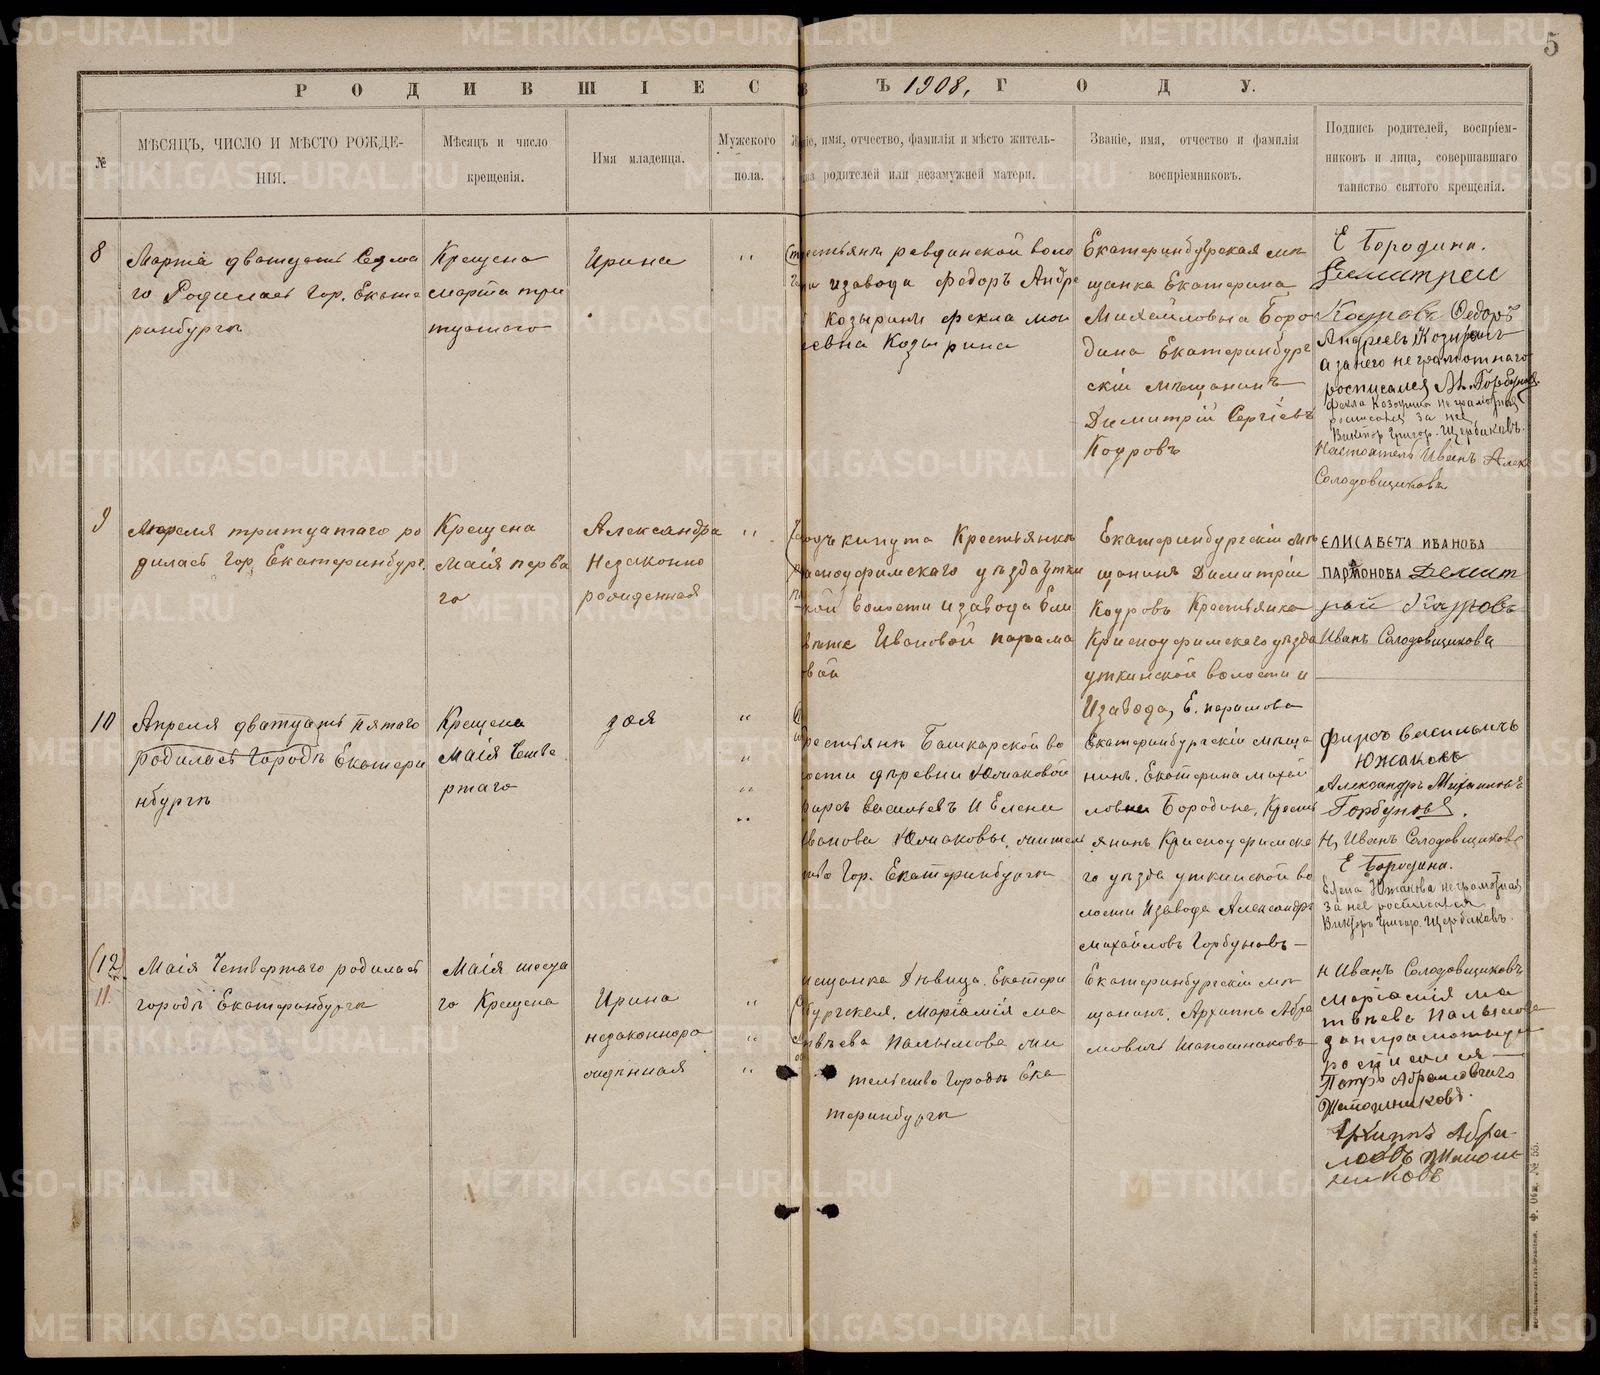 5
РОДИВШІЕС ВЪ 1908, ГОДУ.
№
МѢСЯЦЪ, ЧИСЛО И МѢСТО РОЖДЕ-
НІЯ.
Мѣсяцъ и число
крещенія.
Имя младенца.
Мужского
пола.
іе, имя, отчество, фамилія и мѣсто житель-
родителей или незамужней матери.
Званіе, имя, отчество и фамилія
воспріемниковъ.
Подпись родителей, воспріем-
никовъ и лица, совершавшаго
таинство святого крещенія.
8
Марта дватцать Седма
го Родилась Гор. Екате
ринбургѣ
Крещена
марта три
тцатаго
Ирина
"
рестьянъ ревдинской воло
изавода Федоръ Андре
Козыринъ фекла мои
сеевна Козырина
Екатеринбурская мѣ
щанка Екатерина
Михайловна Боро
дина Екатеринбург
скій мѣщанинъ
Димитрій Сергіевъ
Кодровъ
Е Бородина.
Димитрей
Кодровъ Федоръ
Андреевъ Козыринъ
а занего неграмотнаго
росписался Ал. Горбуновъ
Фекла Козырина неграмотная
росписался за нее
Викторъ Григор. Щербаковъ.
Настоятель Иванъ Алек
Солодовщиковъ
9
Апреля тритцатаго ро
дилась Гор. Екатеринбург.
Крещена
Маія перва
го
Александра
Незаконно
рожденная
"
кинута Крестьянкѣ
расноуфимскаго уѣзда утки
кой волости изавода Ели
Ивановой парамо
вой
Екатеринбургскій мѣ
щанинъ Димитрій
Кодровъ Крестьянка
Красноуфимскаго уѣзда
уткинской волости и
Изавода, Е. парамова
ЕЛИСАВЕТА ИВАНОВА
ПАРАМОНОВА Демит
рей Кодровъ
Иванъ Солодовщиковъ
10
Апреля дватцать пятаго
родилась Городъ Екатери
нбургѣ
Крещена
маія Четве
ртаго
зоя
"
"
"
"
рестьянъ Башкарской во
лости дѣревни Южаковой
фирсъ васильевъ и Елена
Иванова Южаковы, жител
Гор. Екатеринбургѣ
Екатеринбургскій мѣща
нинъ. Екатерина михай
ловна Бородина, Кресть
янинъ Красноуфимска
го уѣзда уткинской во
лости Изавода Александръ
михайловъ Горбуновъ —
фирсъ васильичъ
Южаковъ
Александръ Михаиловъ
Горбуновъ.
Н, Иванъ Солодовщиковъ
Е Бородина.
Елена Южакова неграмотная
за нее росписался
Викторъ Григор. Щербаковъ.
(12)
11.
Маія Четвертаго родилась
городѣ Екатеринбургѣ
Маія шеста
го Крещена
Ирина
незаконноро
жденная
"
"
"
мещанка Дѣвица. Екатери
бургская. Маріамія ма
твѣева Пальмова жи
тельство Городѣ Ека
теринбургѣ
Екатеринбургскій мѣ
щанинъ. Архиппъ Абра
мовичъ Шапошниковъ
Н Иванъ Солодовщиковъ
Маріамія ма
твѣева Пальмова
занеграмотную
росписался
Петръ Абрамовичъ
Шапошниковъ.
Архиппъ Абра
мовъ Шапош
никовъ
METRIKI.GASO-URAL.RU